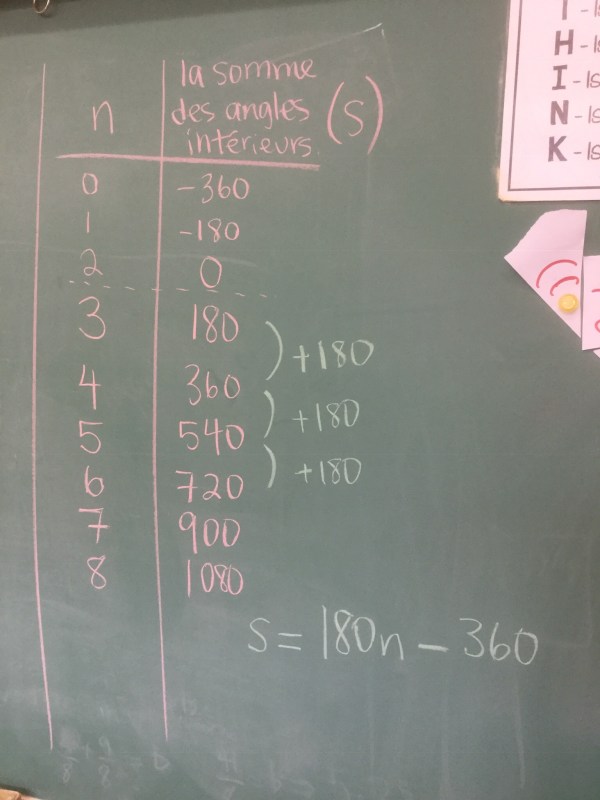 la somme
des angles
intérieurs. (S)
n
0 -360
1 -180
2 0
3 180
4 360
5 540
6 720
7 900
8 1080
+180
+180
+180
S = 180n - 360
I - Is
H - Is
I - Is
N - Is
K - Is